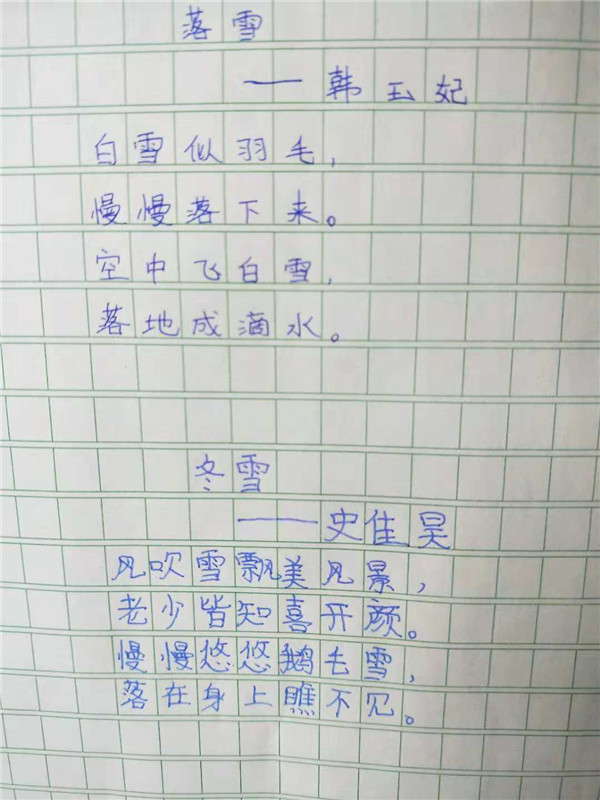 落雪
——韩玉妃
白雪似羽毛，
慢慢落下来。
空中飞白雪，
落地成滴水。
冬雪
——史佳昊
风吹雪飘美风景，
老少皆知喜开颜。
慢慢悠悠鹅毛雪，
落在身上瞧不见。